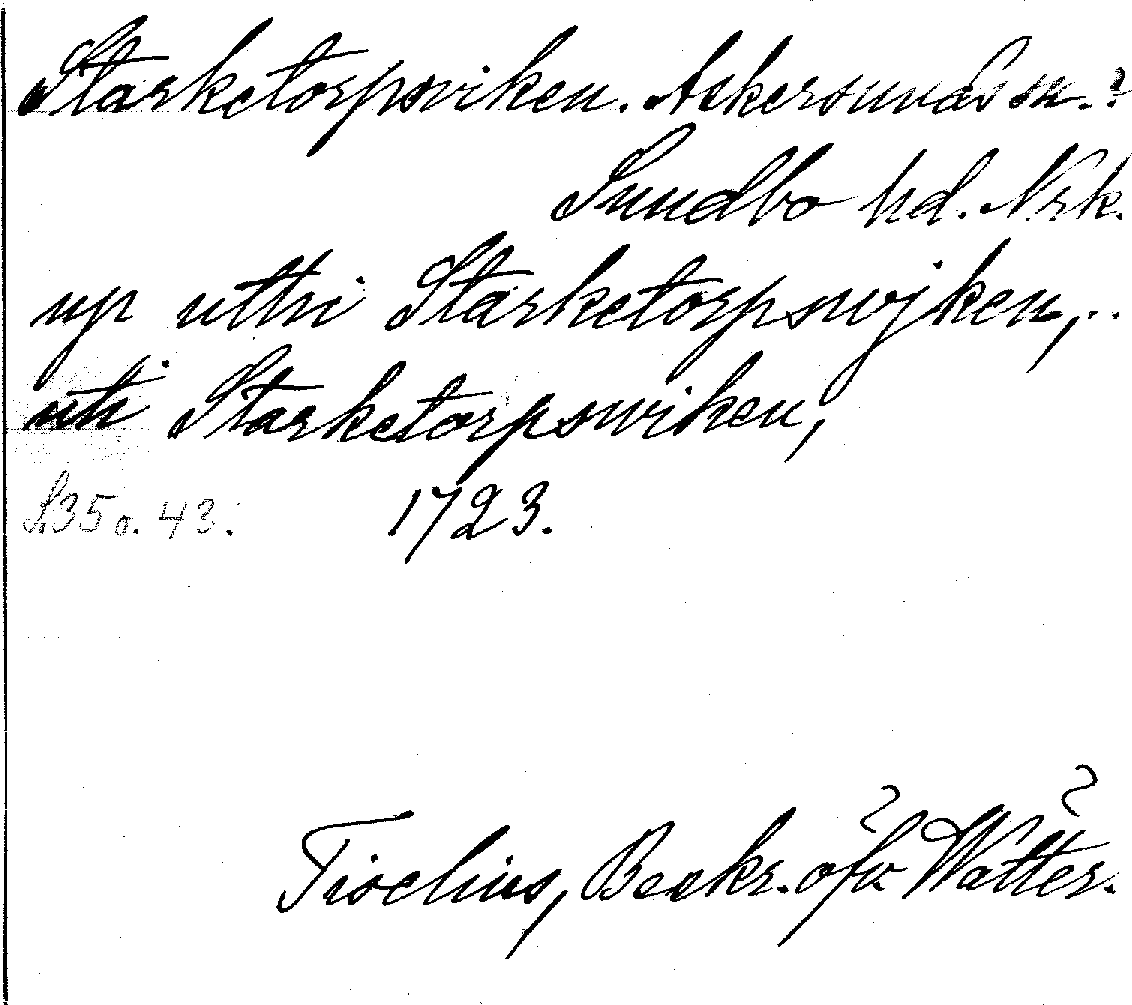 Starketorpsviken. Askersunds sn.?
Sundbo hd. Nrk.
up uthi Starketorpswjken,..
uti Starketorpswiken,
S. 35 o. 43.
1723.
Tiselius, Beskr. öfv. Watter.